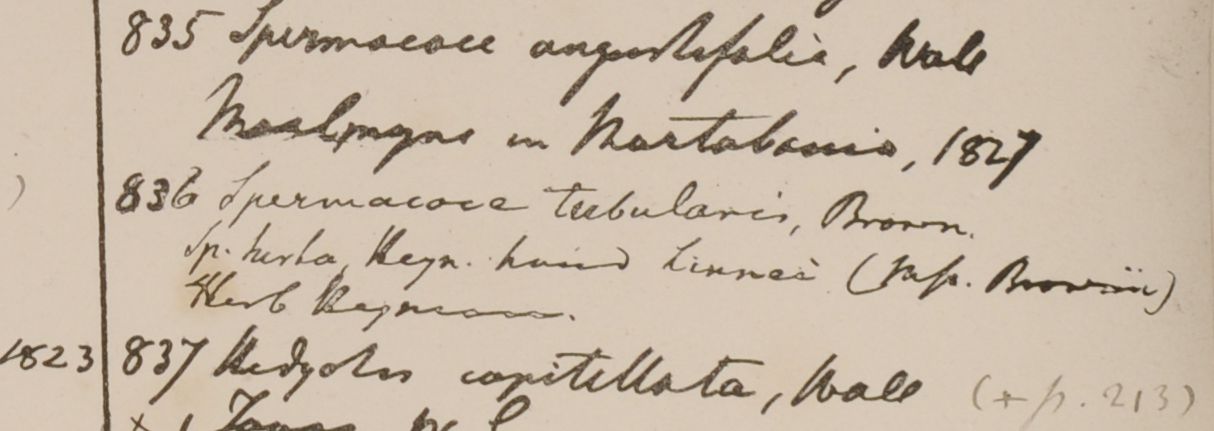 835 Spermacoce angustifolia, Wall
Moalmyne in Martabania, 1827
)
836 Spermacoce tubularis, Brown.
Sp. hirta, Heyn. Linnei (Brownii)
Herb Heyneau.
1823 837 Hedyotis capitellata, Wall (+ p. 213)